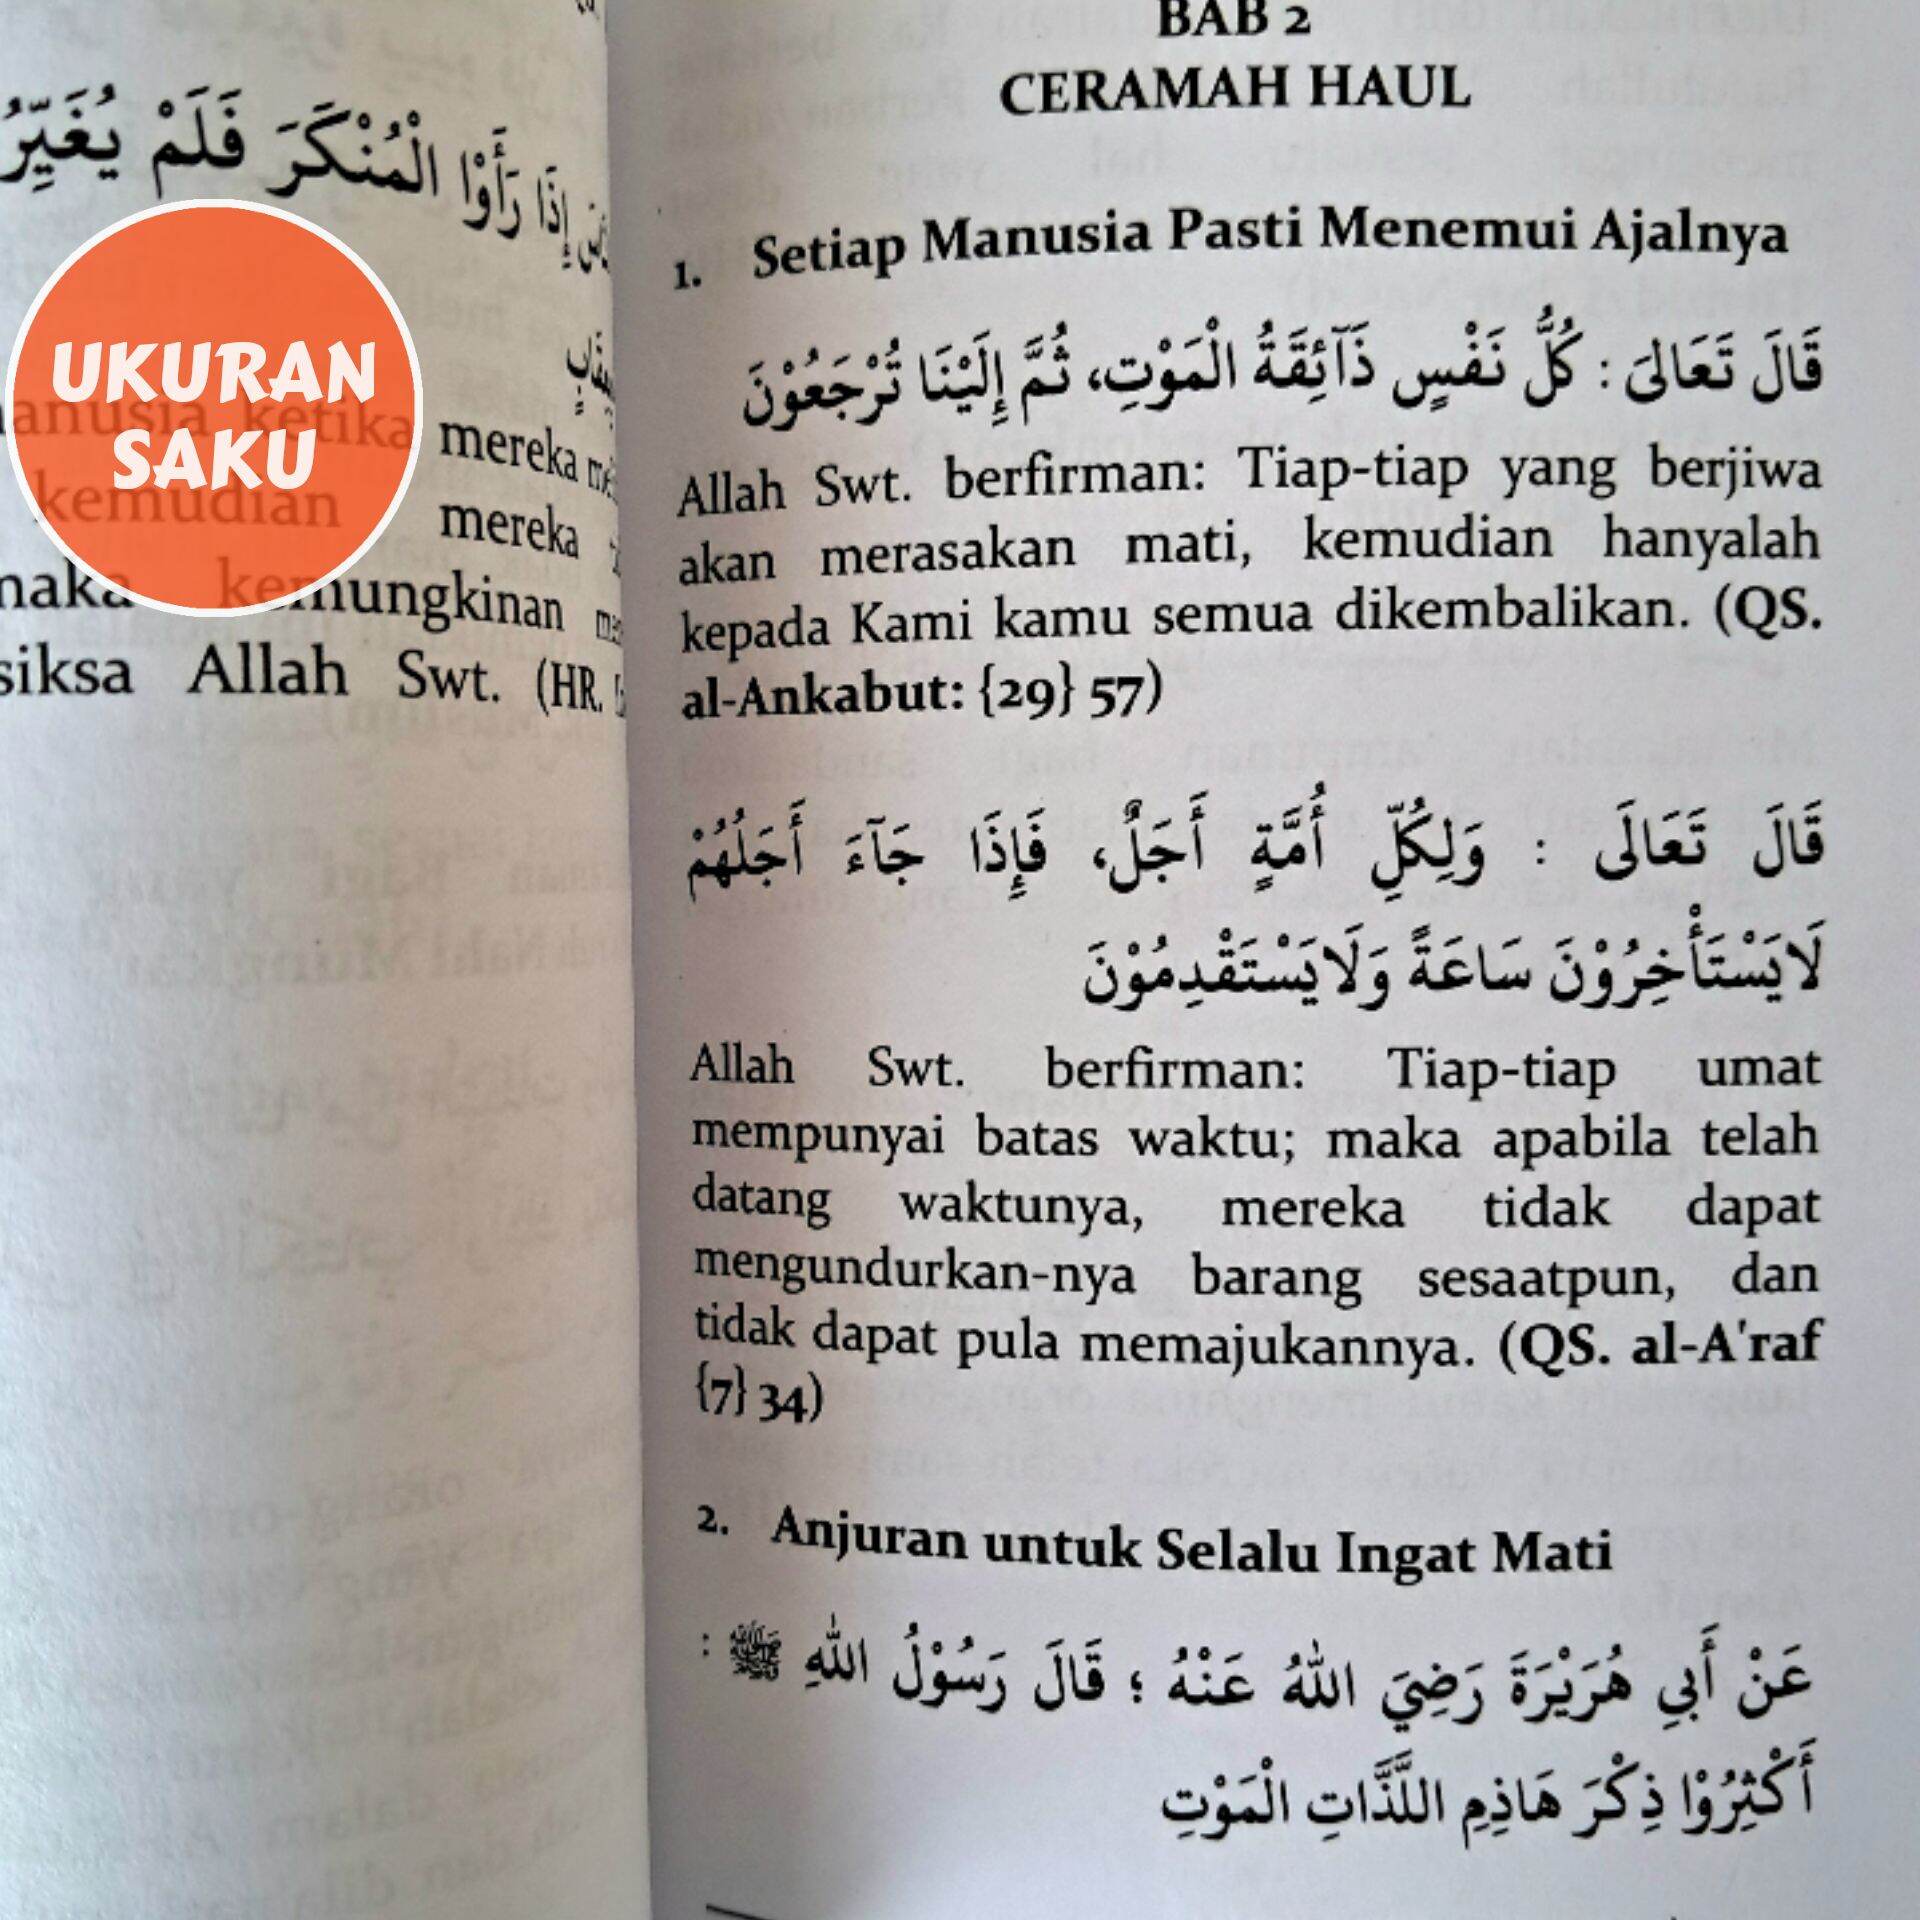 إِذَا رَأَوْا الْمُنْكَرَ فَلَمْ
UKURAN
SAKU
manusia ketika mereka
kemudian mereka
maka kemungkinan
siksa Allah Swt. (HR.
BAB 2
CERAMAH HAUL
1. Setiap Manusia Pasti Menemui Ajalnya
قَالَ تَعَالىَ : كُلُّ نَفْسٍ ذَآئِقَةُ الْمَوْتِ، ثُمَّ إِلَيْنَا تُرْجَعُوْنَ
Allah Swt. berfirman: Tiap-tiap yang berjiwa
akan merasakan mati, kemudian hanyalah
kepada Kami kamu semua dikembalikan. (QS.
al-Ankabut: {29} 57)
قَالَ تَعَالَى : وَلِكُلِّ أُمَّةٍ أَجَلٌ، فَإِذَا جَآءَ أَجَلُهُمْ
لَايَسْتَأْخِرُوْنَ سَاعَةً وَلَايَسْتَقْدِمُوْنَ
Allah Swt. berfirman: Tiap-tiap umat
mempunyai batas waktu; maka apabila telah
datang waktunya, mereka tidak dapat
mengundurkan-nya barang sesaatpun, dan
tidak dapat pula memajukannya. (QS. al-A'raf
{7} 34)
2. Anjuran untuk Selalu Ingat Mati
عَنْ أَبِي هُرَيْرَةَ رَضِيَ اللهُ عَنْهُ ؛ قَالَ رَسُوْلُ اللهِ ﷺ :
أَكْثِرُوْا ذِكْرَ هَاذِمِ اللَّذَّاتِ الْمَوْتِ